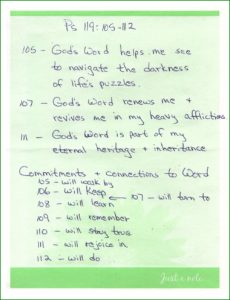 Ps 119:105-112
105 - God's Word helps me see
to navigate the darkness
of life's puzzles.
107 - God's Word renews me +
revives me in my heavy affliction.
111 - God's Word is part of my
eternal heritage + inheritance
Commitments + connections to Word
105 - will walk by
106 - will keep
107 - will turn to
108 - will learn
109 - will remember
110 - will stay true
111 - will rejoice in
112 - will do
Just a note